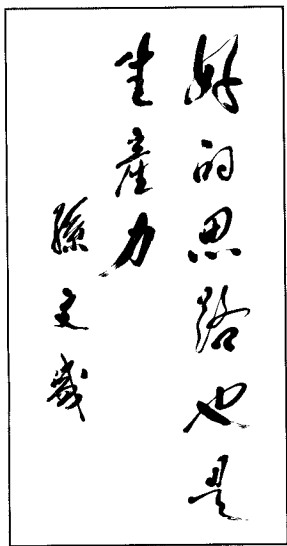 好的思路也是
生產力
孫文盛